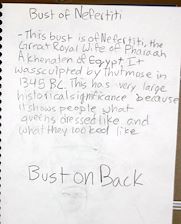 Bust of Nefertiti
- This bust is of Nefertiti, the
Great Royal Wife of Pharaah
Akhenaten of Egypt. It
was sculpted by Thutmose in
1345 BC. This has very large
historical significance because
it shows people what
queens dressed like and
what they looked like
Bust on Back